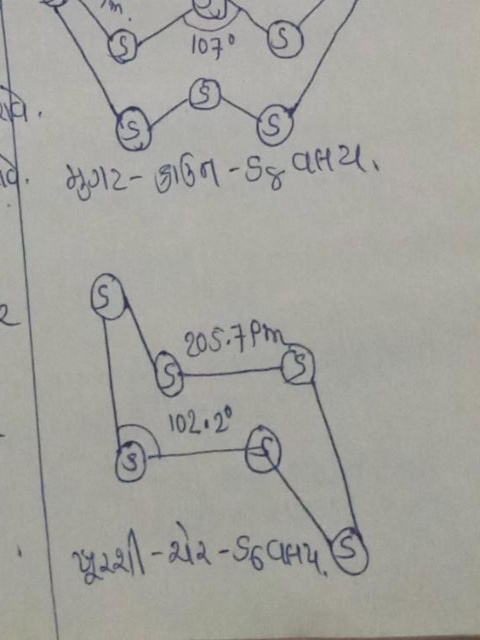 m.
S S S
107°
S S S
મુગટ - ક્રાઉન - S8 વલય.
S
205.7 Pm
S S
102.2°
S S
ખુરશી - ચેર - S6 વલય. S